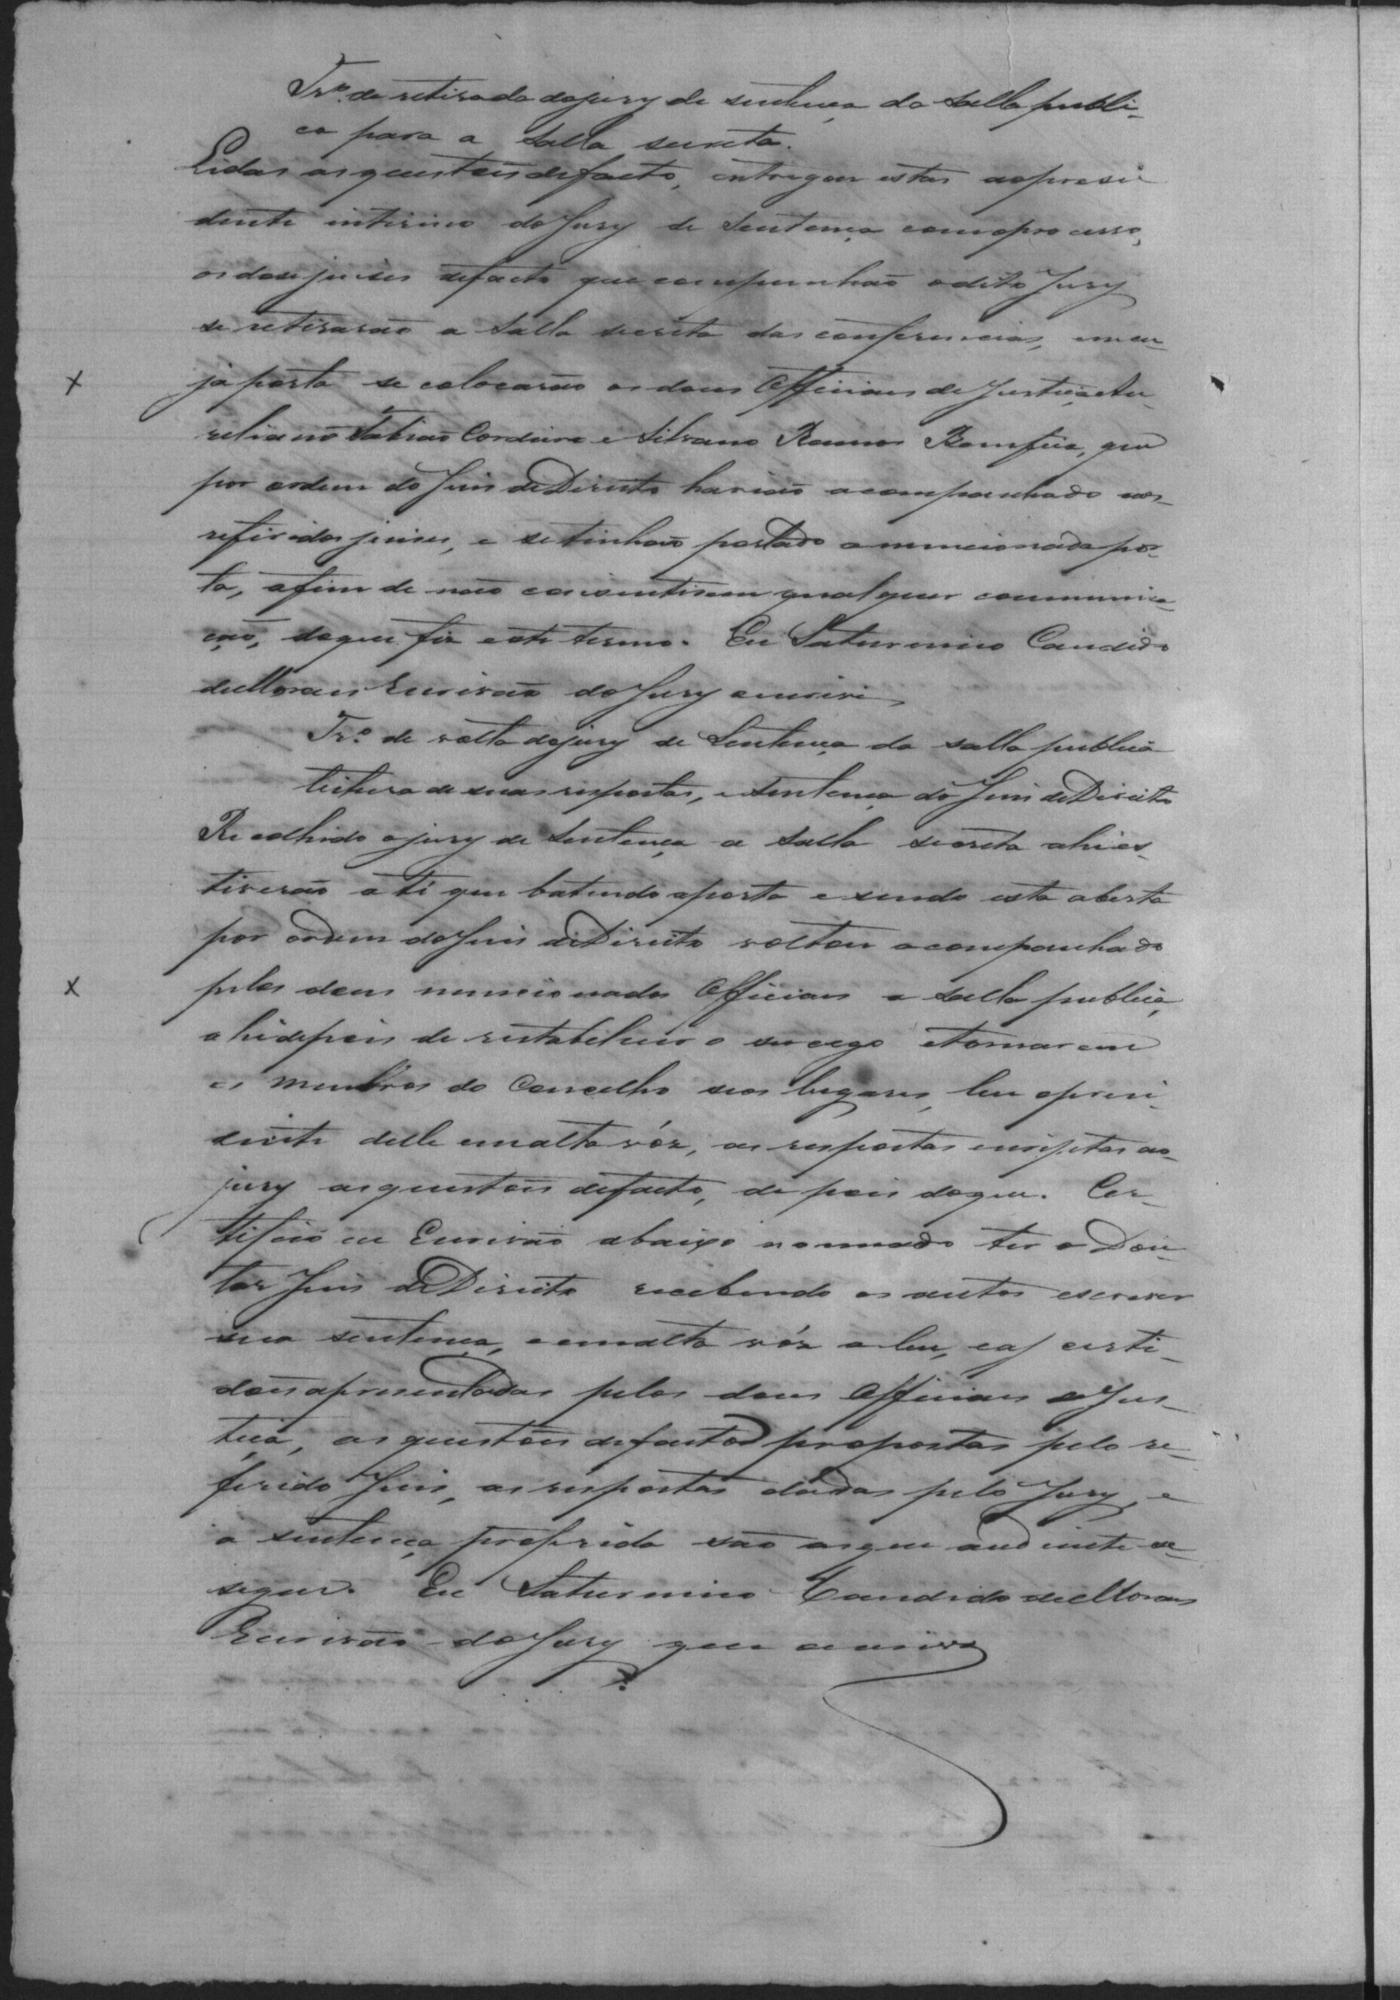 Trº de retirada do jury de sentença da salla publi-
ca para a salla secreta.
Lidas as questões de facto, entregou estas ao presi
dente interino do Jury de Sentença com o processo,
os dose juises de facto que compunhão o dito Jury
se retirarão a salla secreta das conferencias, em cu-
ja porta se colocarão os dous Officiaes de Justiça Au-
reliano Cordeiro e Silvano Ramos, que
por ordem do Juis de Direito havião acompanhado aos
referidos juises, e se tinhão postado a mencionada por-
ta, afim de não consintirem qualquer communica-
ção, do que fis este termo. Eu Saturnino Candido
de Moraes Escrivão do Jury escrivi
Trº de volta do jury de Sentença da salla publica
leitura de suas respostas, e sentença do Juis de Direito
Recolhido o jury de Sentença a salla secreta ahi es-
tiverão até que batendo a porta e sendo esta aberta
por ordem do Juis de Direito voltou acompanhado
pelos dous mencionados Officiaes a salla publica,
ahi depois de restabelecer o socego e tomarem
os membros do Concelho seos lugares, leu o presi-
dente delle em alta vóz, as respostas do
jury as questões de facto, depois do que. Cer-
tifico eu Escrivão abaixo nomeado ter o Dou-
tor Juis de Direito recebendo os autos escrever
sua sentença, e em alta vóz a leu, e as certi-
dões apresentadas pelos dous Officiaes de Jus-
tiça, as questões de facto propostas pelo re-
ferido Juis, as respostas dadas pelo Jury, e
a sentença proferida são as que adiante se
segue. Eu Saturnino Candido de Moraes
Escrivão do Jury que escrivi